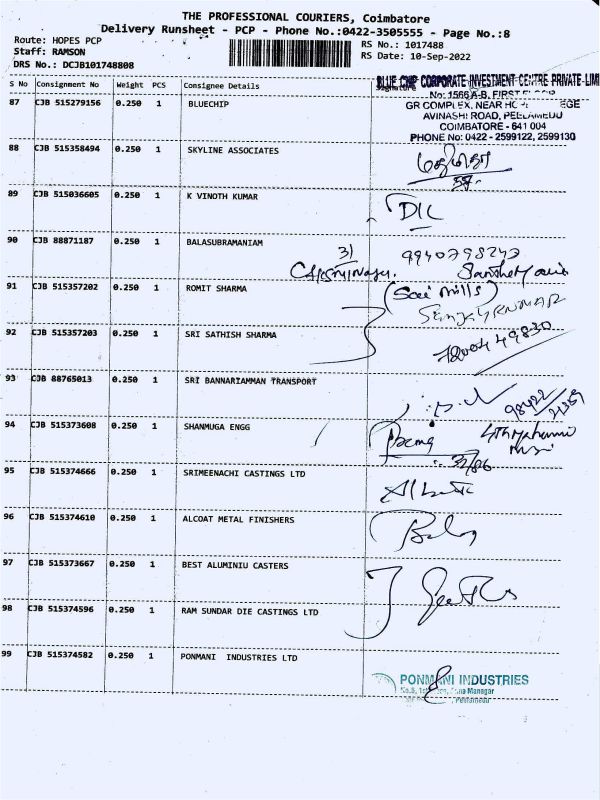 THE PROFESSIONAL COURIERS, Coimbatore
Delivery Runsheet - PCP - Phone No.:0422-3505555 - Page No.:8
Route: HOPES PCP
RS No.: 1017488
Staff: RAMSON
RS Date: 10-Sep-2022
DRS No.: DCJB101748808
S No Consignment No Weight PCS Consignee Details Signature
BLUE CHIP CORPORATE INVESTMENT CENTRE PRIVATE LIMI
No: 1566 A-B, FIRST FLOOR
87 CJB 515279156 0.250 1 BLUECHIP
GR COMPLEX, NEAR
AVINASHI ROAD, PEELAMEDU
COIMBATORE - 641 004
PHONE No: 0422 - 2599122, 2599130
88 CJB 515358494 0.250 1 SKYLINE ASSOCIATES
89 CJB 515036605 0.250 1 K VINOTH KUMAR
DIL
90 CJB 88871187 0.250 1 BALASUBRAMANIAM
31 9940798243
91 CJB 515357202 0.250 1 ROMIT SHARMA
(Sai Mills)
92 CJB 515357203 0.250 1 SRI SATHISH SHARMA
7200449830
93 CJB 88765013 0.250 1 SRI BANNARIAMMAN TRANSPORT
98422
21359
94 CJB 515373608 0.250 1 SHANMUGA ENGG
95 CJB 515374666 0.250 1 SRIMEENACHI CASTINGS LTD
96 CJB 515374610 0.250 1 ALCOAT METAL FINISHERS
97 CJB 515373667 0.250 1 BEST ALUMINIU CASTERS
98 CJB 515374596 0.250 1 RAM SUNDAR DIE CASTINGS LTD
99 CJB 515374582 0.250 1 PONMANI INDUSTRIES LTD
PONMANI INDUSTRIES
Nagar
Peelamedu